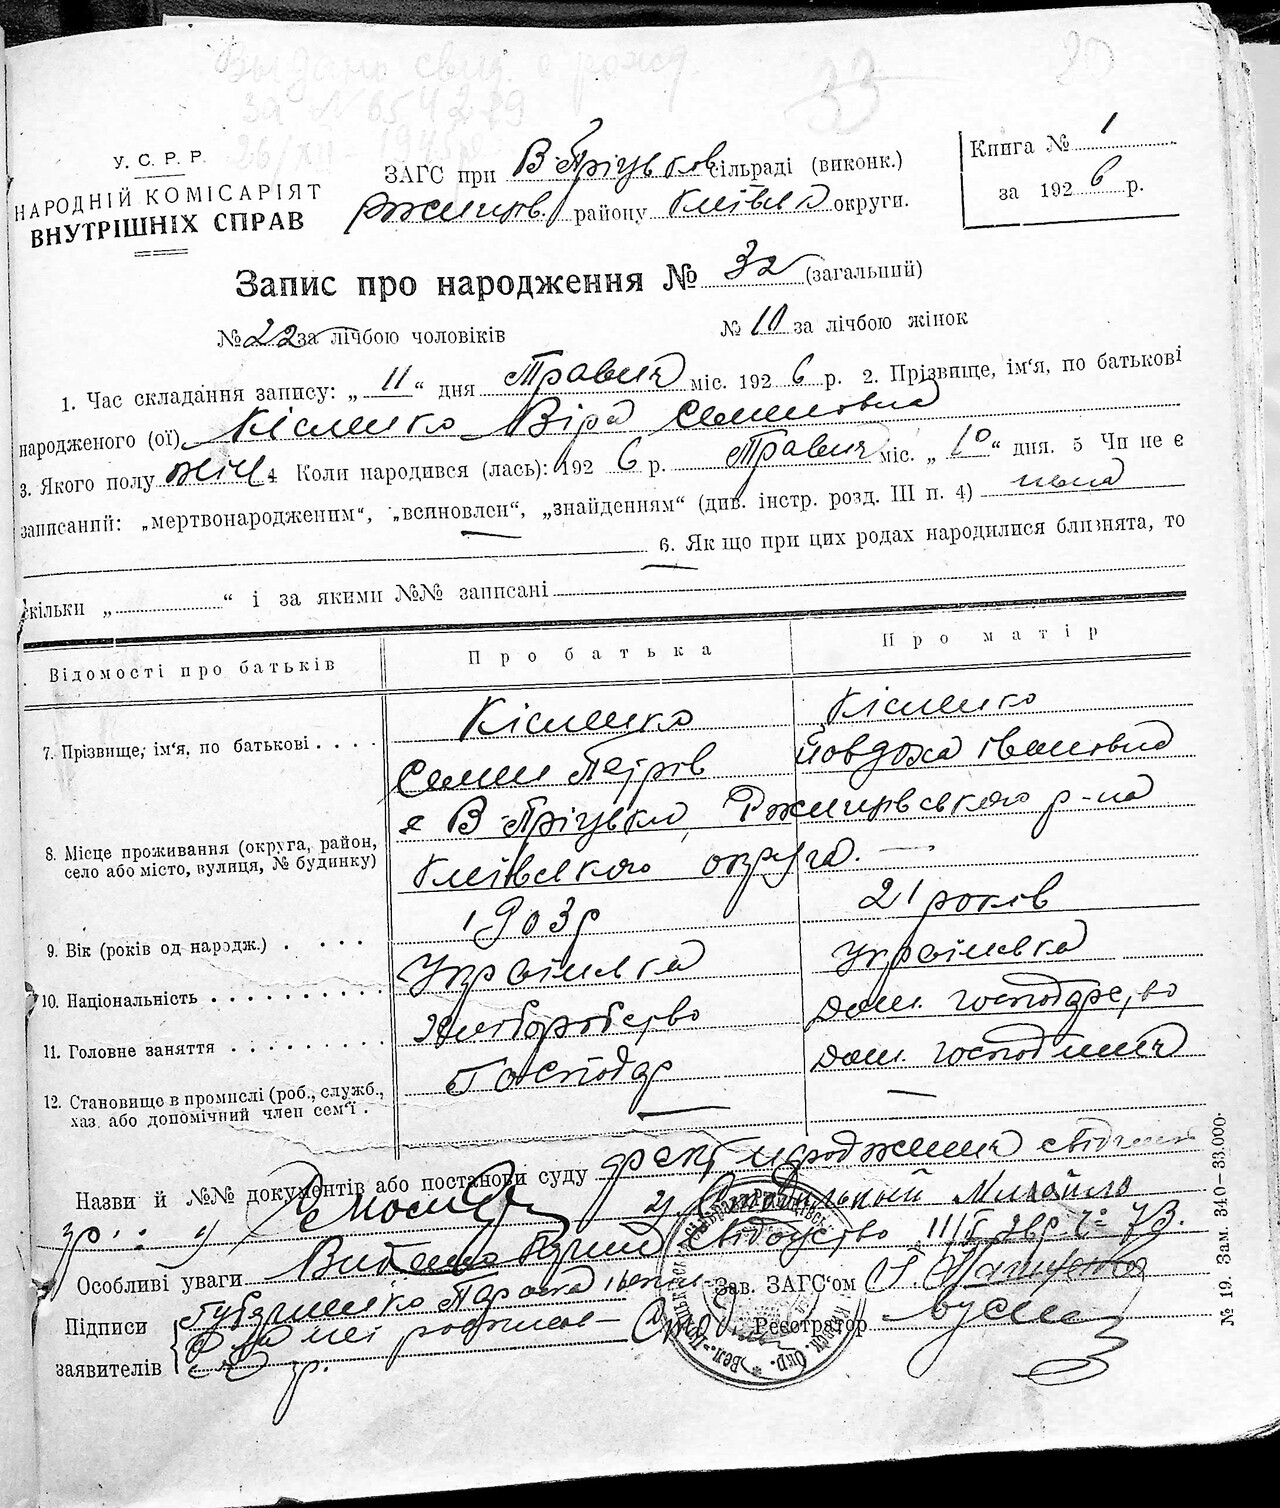 Выдано свид. о рожд.
за N 654279
26/XII - 1945 р.
33
20
У. С. Р. Р.
НАРОДНІЙ КОМІСАРІЯТ
ВНУТРІШНІХ СПРАВ
ЗАГС при В-Пріцьков сільраді (виконк.)
Ржищів. району Київськ округи.
Книга № 1
за 1926 р.
Запис про народження № 32 (загальний)
№ 22 за лічбою чоловіків № 10 за лічбою жінок
1. Час складання запису: „ 11 “ дня Травня міс. 1926 р. 2. Прізвище, ім'я, по батькові
народженого (ої) Кісленко Віра Семеновна
3. Якого полу жіч. 4 Коли народився (лась): 1926 р. Травня міс. „ 10 “ дня. 5 Чи не є
записаний: „мертвонародженим“, „всиновлен“, „знайденням“ (див. інстр. розд. III п. 4) нема
6. Як що при цих родах народилися близнята, то
скільки „ “ і за якими №№ записані
Відомості про батьків Про батька Про матір
7. Прізвище, ім'я, по батькові . . . . Кісленко Кісленко
Семен Петров Йовдоха Івановна
8. Місце проживання (округа, район, село або місто, вулиця, № будинку) с В-Пріцьки, Ржищівського р-на
Київського округа. —
9. Вік (років од народж.) . . . . 1903 р 21 років
10. Національність . . . . . . . . . . Українська Українська
11. Головне заняття . . . . . . . . . Хліборобство Дом. господарство
12. Становище в промислі (роб., служб., хаз. або допомічний член сем'ї . Господар Дом. господиня
Назви й №№ документів або постанови суду факт народження свідчать
гр. 2) Михайло
Особливі уваги Свідоцтво 73.
Підписи заявителів { Зав. ЗАГС'ом
Реєстратор
№ 19. Зам. 340—33.000.